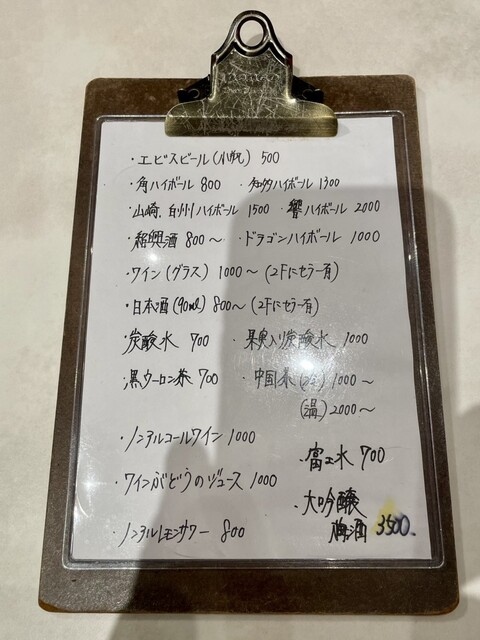 ・エビスビール(小瓶) 500
・角ハイボール 800 ・知多ハイボール 1300
・山崎、白州ハイボール 1500 ・響ハイボール 2000
・紹興酒 800〜 ・ドラゴンハイボール 1000
・ワイン(グラス) 1000〜(2Fにセラー有)
・日本酒(90ml) 800〜(2Fにセラー有)
・炭酸水 700 ・果実入り炭酸水 1000
・黒ウーロン茶 700 ・中国茶(冷) 1000〜
(温) 2000〜
・ノンアルコールワイン 1000
・富士水 700
・ワインぶどうのジュース 1000
・大吟醸
梅酒 3500.
・ノンアルレモンサワー 800